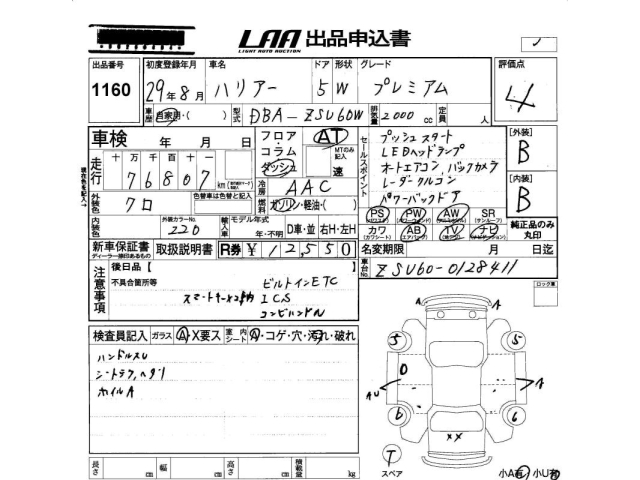 LAA 出品申込書
LIGHT AUTO AUCTION
出品番号 1160
初度登録年月 29年8月
車名 ハリアー
ドア 形状 5 W
グレード プレミアム
評価点 4
車歴 自家用・( )
型式 DBA-ZSU60W
排気量 2000 cc
定員 人
車検 年 月 日
フロア・コラム・ダッシュ
AT
MTのみ記入 速
セールスポイント
プッシュスタート
LEDヘッドランプ
オートエアコン,バックカメラ
レーダークルコン
パワーバックドア
[外装] B
[内装] B
走行 十万 万 千 百 十 一
76807 km
冷房 AAC
燃料 ガソリン・軽油・( )
外装色 クロ
色替車は色替と記入
内装色
外装カラーNo. 220
輸入車 モデル年式 年・不明
D車・並 右H・左H
PS (パワステ) PW (パワーウィンド) AW (アルミホイール) SR (サンルーフ)
カワ (カワシート) AB (エアバック) TV (テレビ) ナビ (ナビゲーション)
純正品のみ丸印
新車保証書 取扱説明書 R券 ¥12,550
ディーラー捺印あるもの
名変期限 月 日迄
車台No. ZSU60-0128411
注意事項
後日品【 】
不具合箇所等
スマートキーX2 ビルトインETC
ICS
コンビハンドル
ロック車
検査員記入 ガラス A・X要ス 室内シート A・コゲ・穴・汚れ・破れ
ハンドルスレ
ホイルA
A A
5 5
O
AU A
6 6
XX
T
スペア
小A有 小U有
長さ cm 幅 cm 高さ cm 積載量 kg